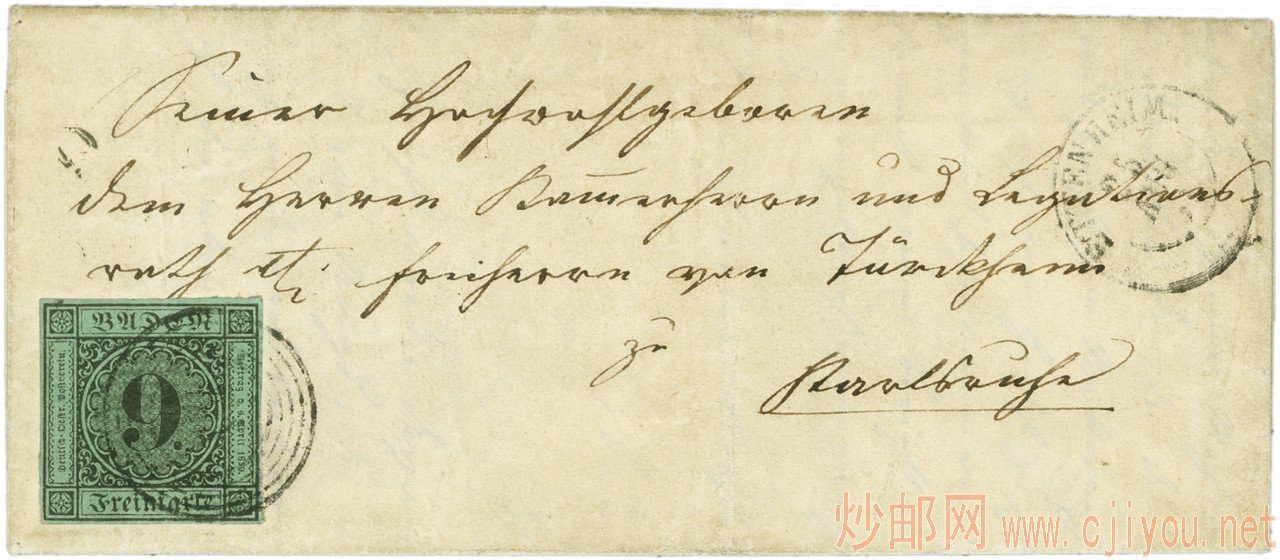 Seiner Hochwohlgeboren
dem Herren Kammerherrn und Legations-
rath Freiherrn von Türckheim
zu
Karlsruhe
ETTENHEIM.
25
BADEN
Deutsch-Oestr. Postverein.
9.
Vertrag v. 6. April 1850.
Freimarke
炒邮网 www.cjiyou.net